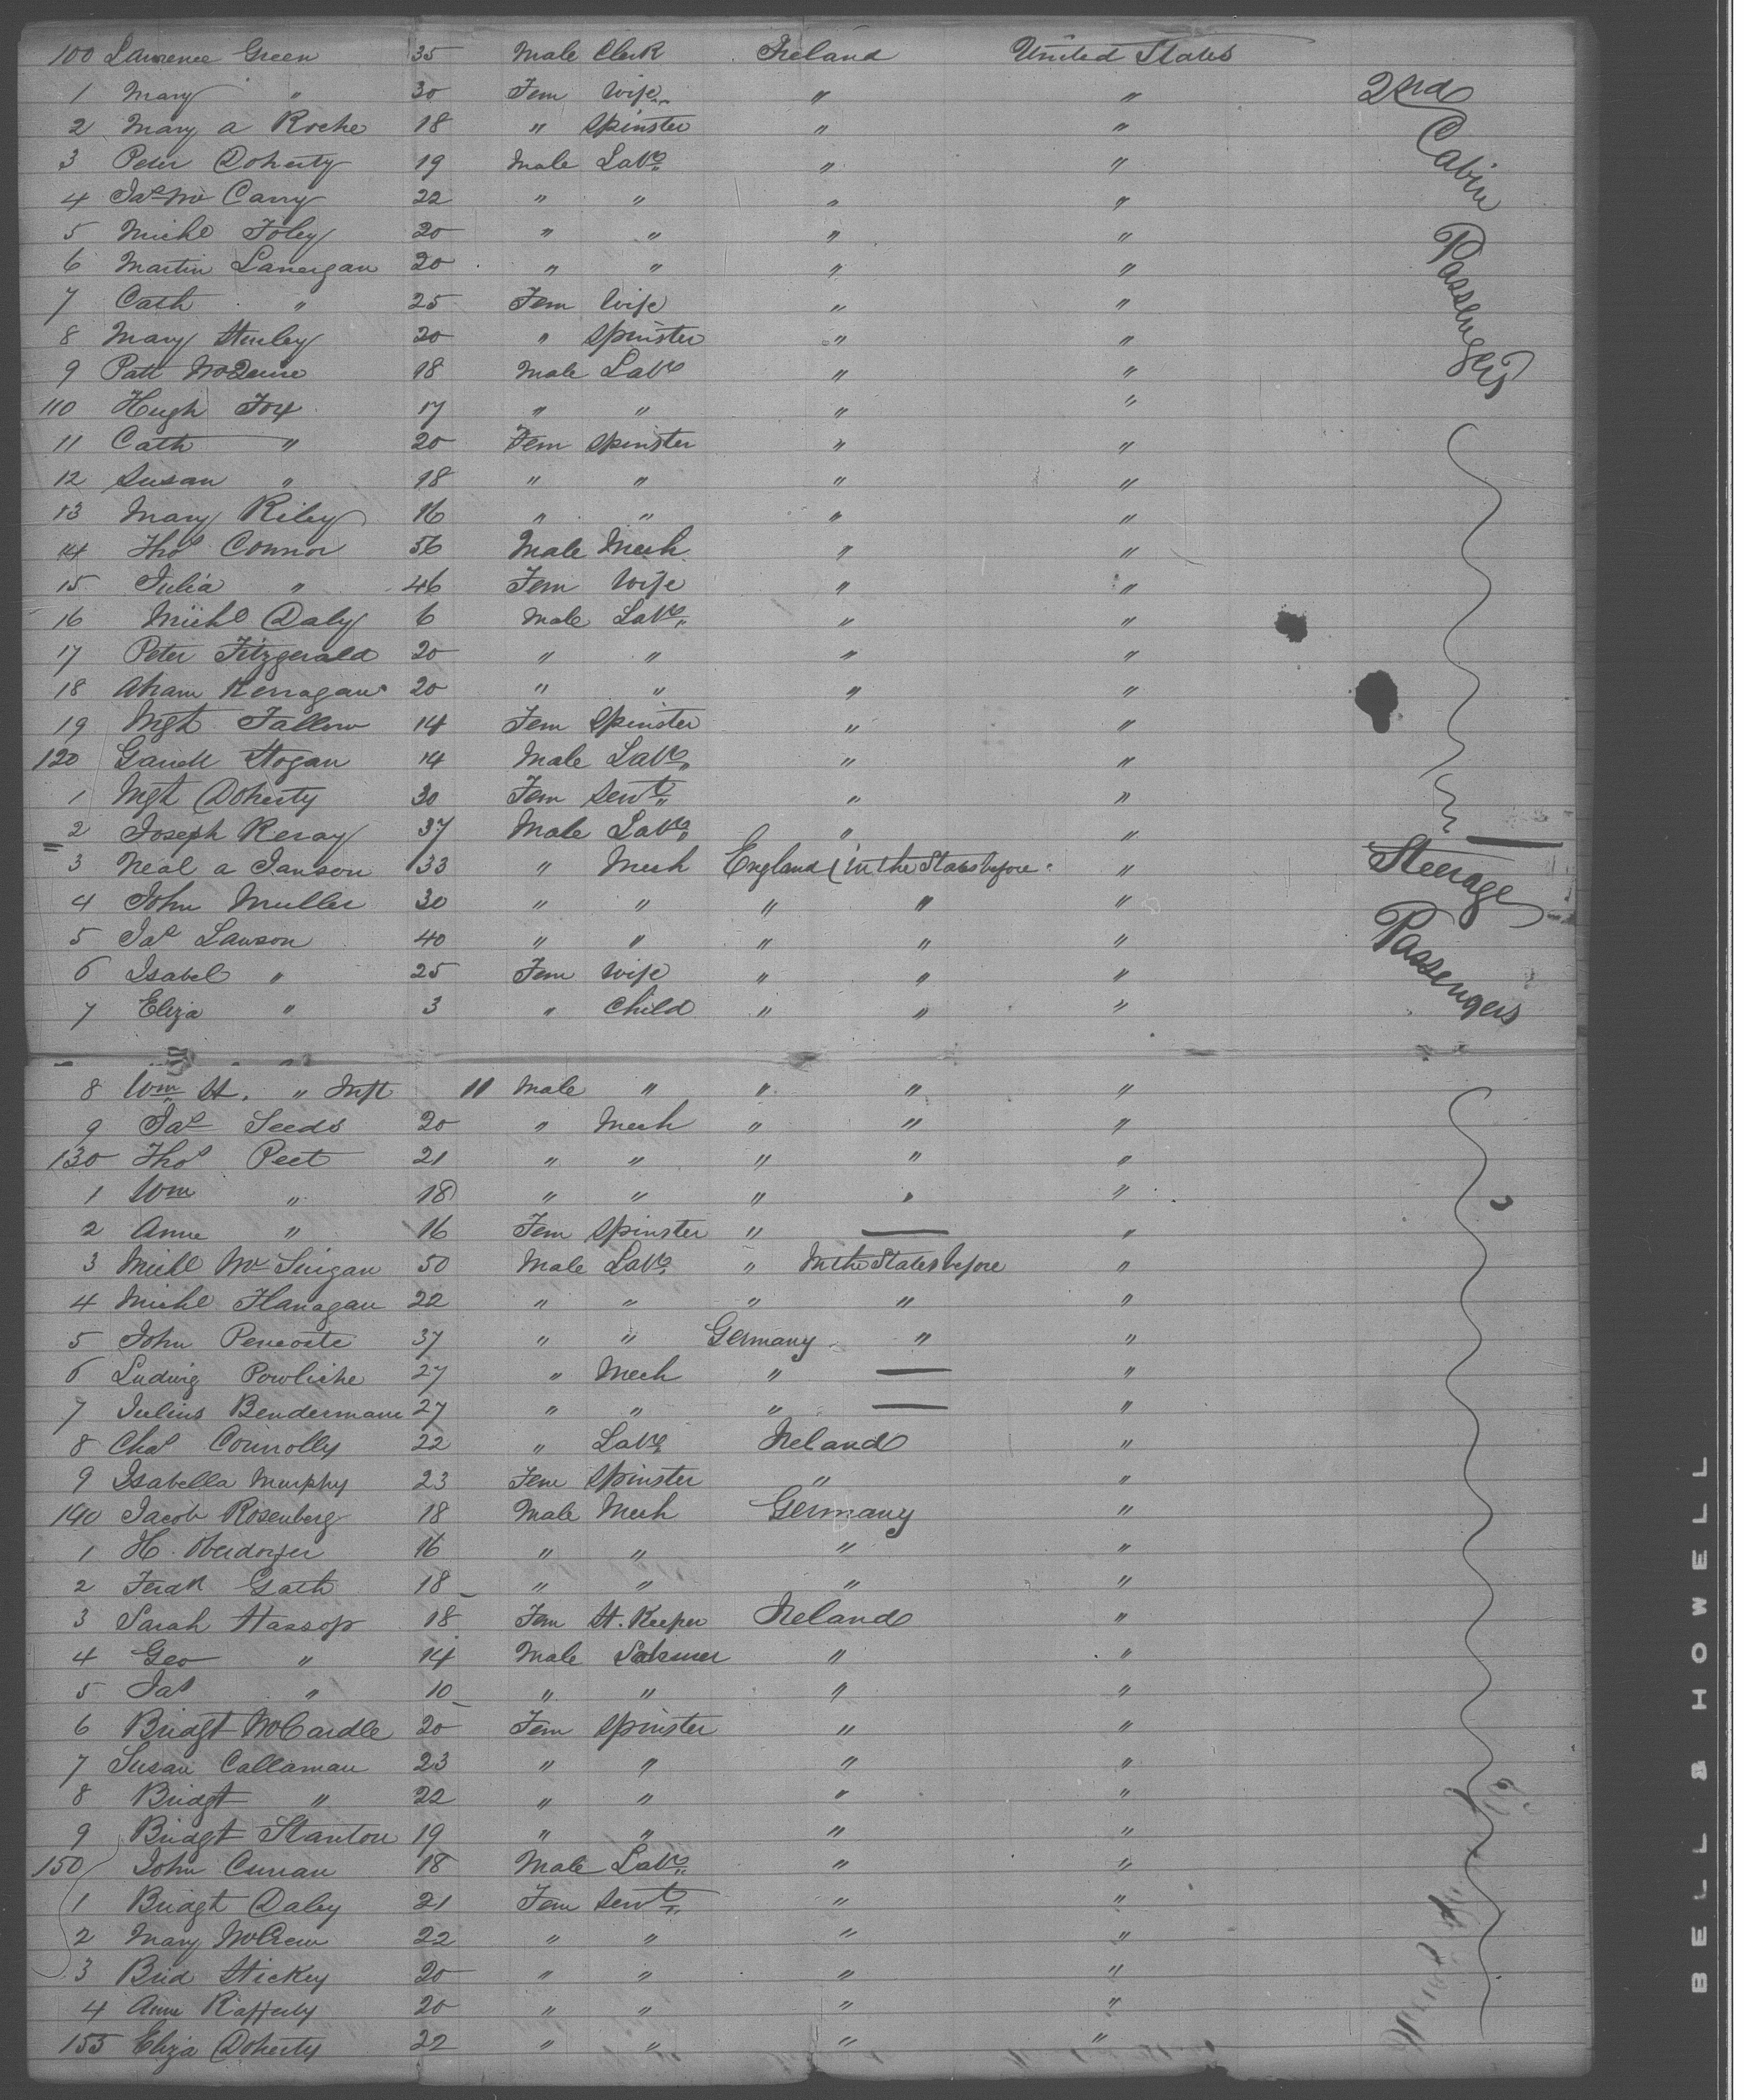 100 Lawrence Green 35 Male Clerk Ireland United States
1 Mary " 30 Fem Wife " "
2 Mary a Roche 18 " Spinster " "
3 Peter Doherty 19 Male Labr " "
4 Jas Mc Carry 22 " " " "
5 Michl Foley 20 " " " "
6 Martin Lanergan 20 " " " "
7 Cath " 25 Fem Wife " "
8 Mary Hurley 20 " Spinster " "
9 Patt 18 Male Labr " "
110 Hugh Fox 17 " " " "
11 Cath " 20 Fem Spinster " "
12 Susan " 18 " " " "
13 Mary Riley 16 " " " "
14 Thos Connor 56 Male Mech " "
15 Julia " 46 Fem Wife " "
16 Michl Daly 6 Male Labr " "
17 Peter Fitzgerald 20 " " " "
18 Kerragan 20 " " " "
19 Mgt Fallow 14 Fem Spinster " "
120 Hogan 14 Male Labr " "
1 Mgt Doherty 30 Fem Servt " "
2 Joseph Keray 37 Male Labr " "
3 Neal a Janson 33 " Mech England (In the States before "
4 John Muller 30 " " " " "
5 Jas Lawson 40 " " " " "
6 Isabel " 25 Fem Wife " " "
7 Eliza " 3 " Child " " "
8 Wm H. " Inft 11 Male " " " "
9 Jas Seeds 20 " Mech " " "
130 Thos Peet 21 " " " " "
1 Wm " 18 " " " " "
2 Anne " 16 Fem Spinster " — "
3 Michl Mc 50 Male Labr " In the States before "
4 Michl Flanagan 22 " " " " "
5 John Pencoste 37 " " Germany " "
6 Ludwig Powliche 27 " Mech " — "
7 Julius Bendermann 27 " " " — "
8 Chas Connolly 22 " Labr Ireland "
9 Isabella Murphy 23 Fem Spinster " "
140 Jacob Rosenberg 18 Male Mech Germany "
1 H. Oberdorfer 16 " " " "
2 Ferdk Gath 18 " " " "
3 Sarah Hassop 18 Fem H. Keeper Ireland "
4 Geo " 14 Male " "
5 Jas " 10 " " " "
6 Bridgt McCardle 20 Fem Spinster " "
7 Susan Callaman 23 " " " "
8 Bridgt " 22 " " " "
9 Bridgt Stanton 19 " " " "
150 John Curran 18 Male Labr " "
1 Bridgt Daley 21 Fem Servt " "
2 Mary McCrew 22 " " " "
3 Brid Hickey 20 " " " "
4 Ann Rafferty 20 " " " "
155 Eliza Doherty 22 " " " "
2nd Cabin Passengers
Steerage Passengers
BELL & HOWELL